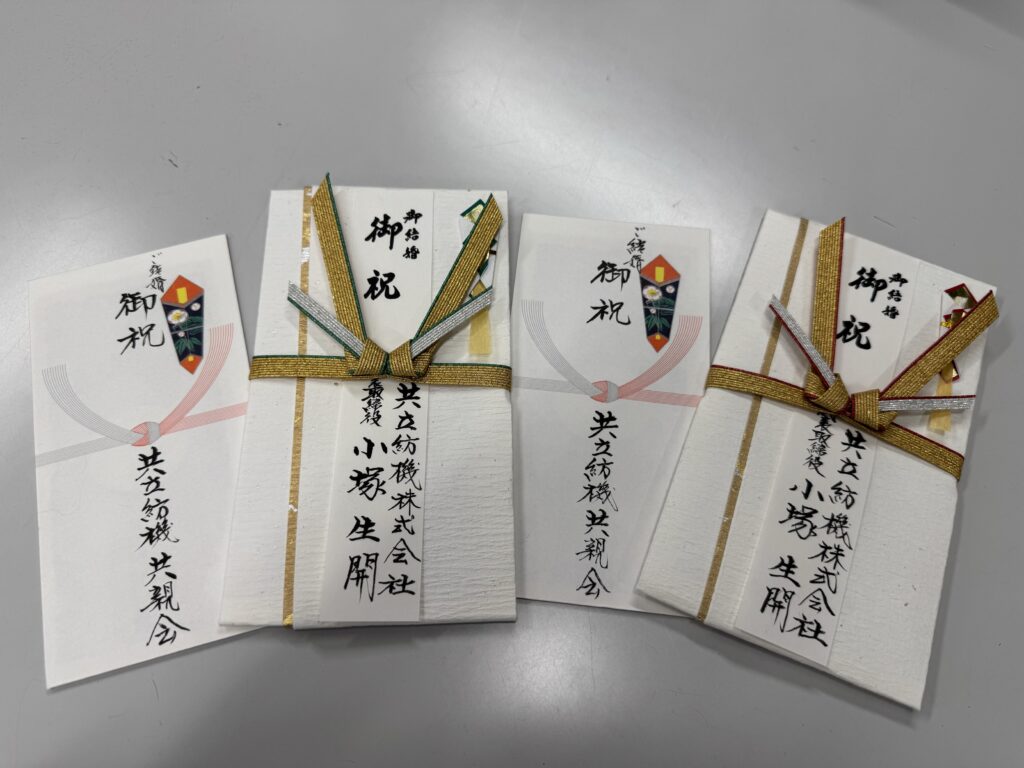 ご結婚
御祝
共立紡機 共親会
御結婚
御祝
共立紡機株式会社
取締役 小塚 生開
ご結婚
御祝
共立紡機 共親会
御結婚
御祝
共立紡機株式会社
取締役 小塚 生開